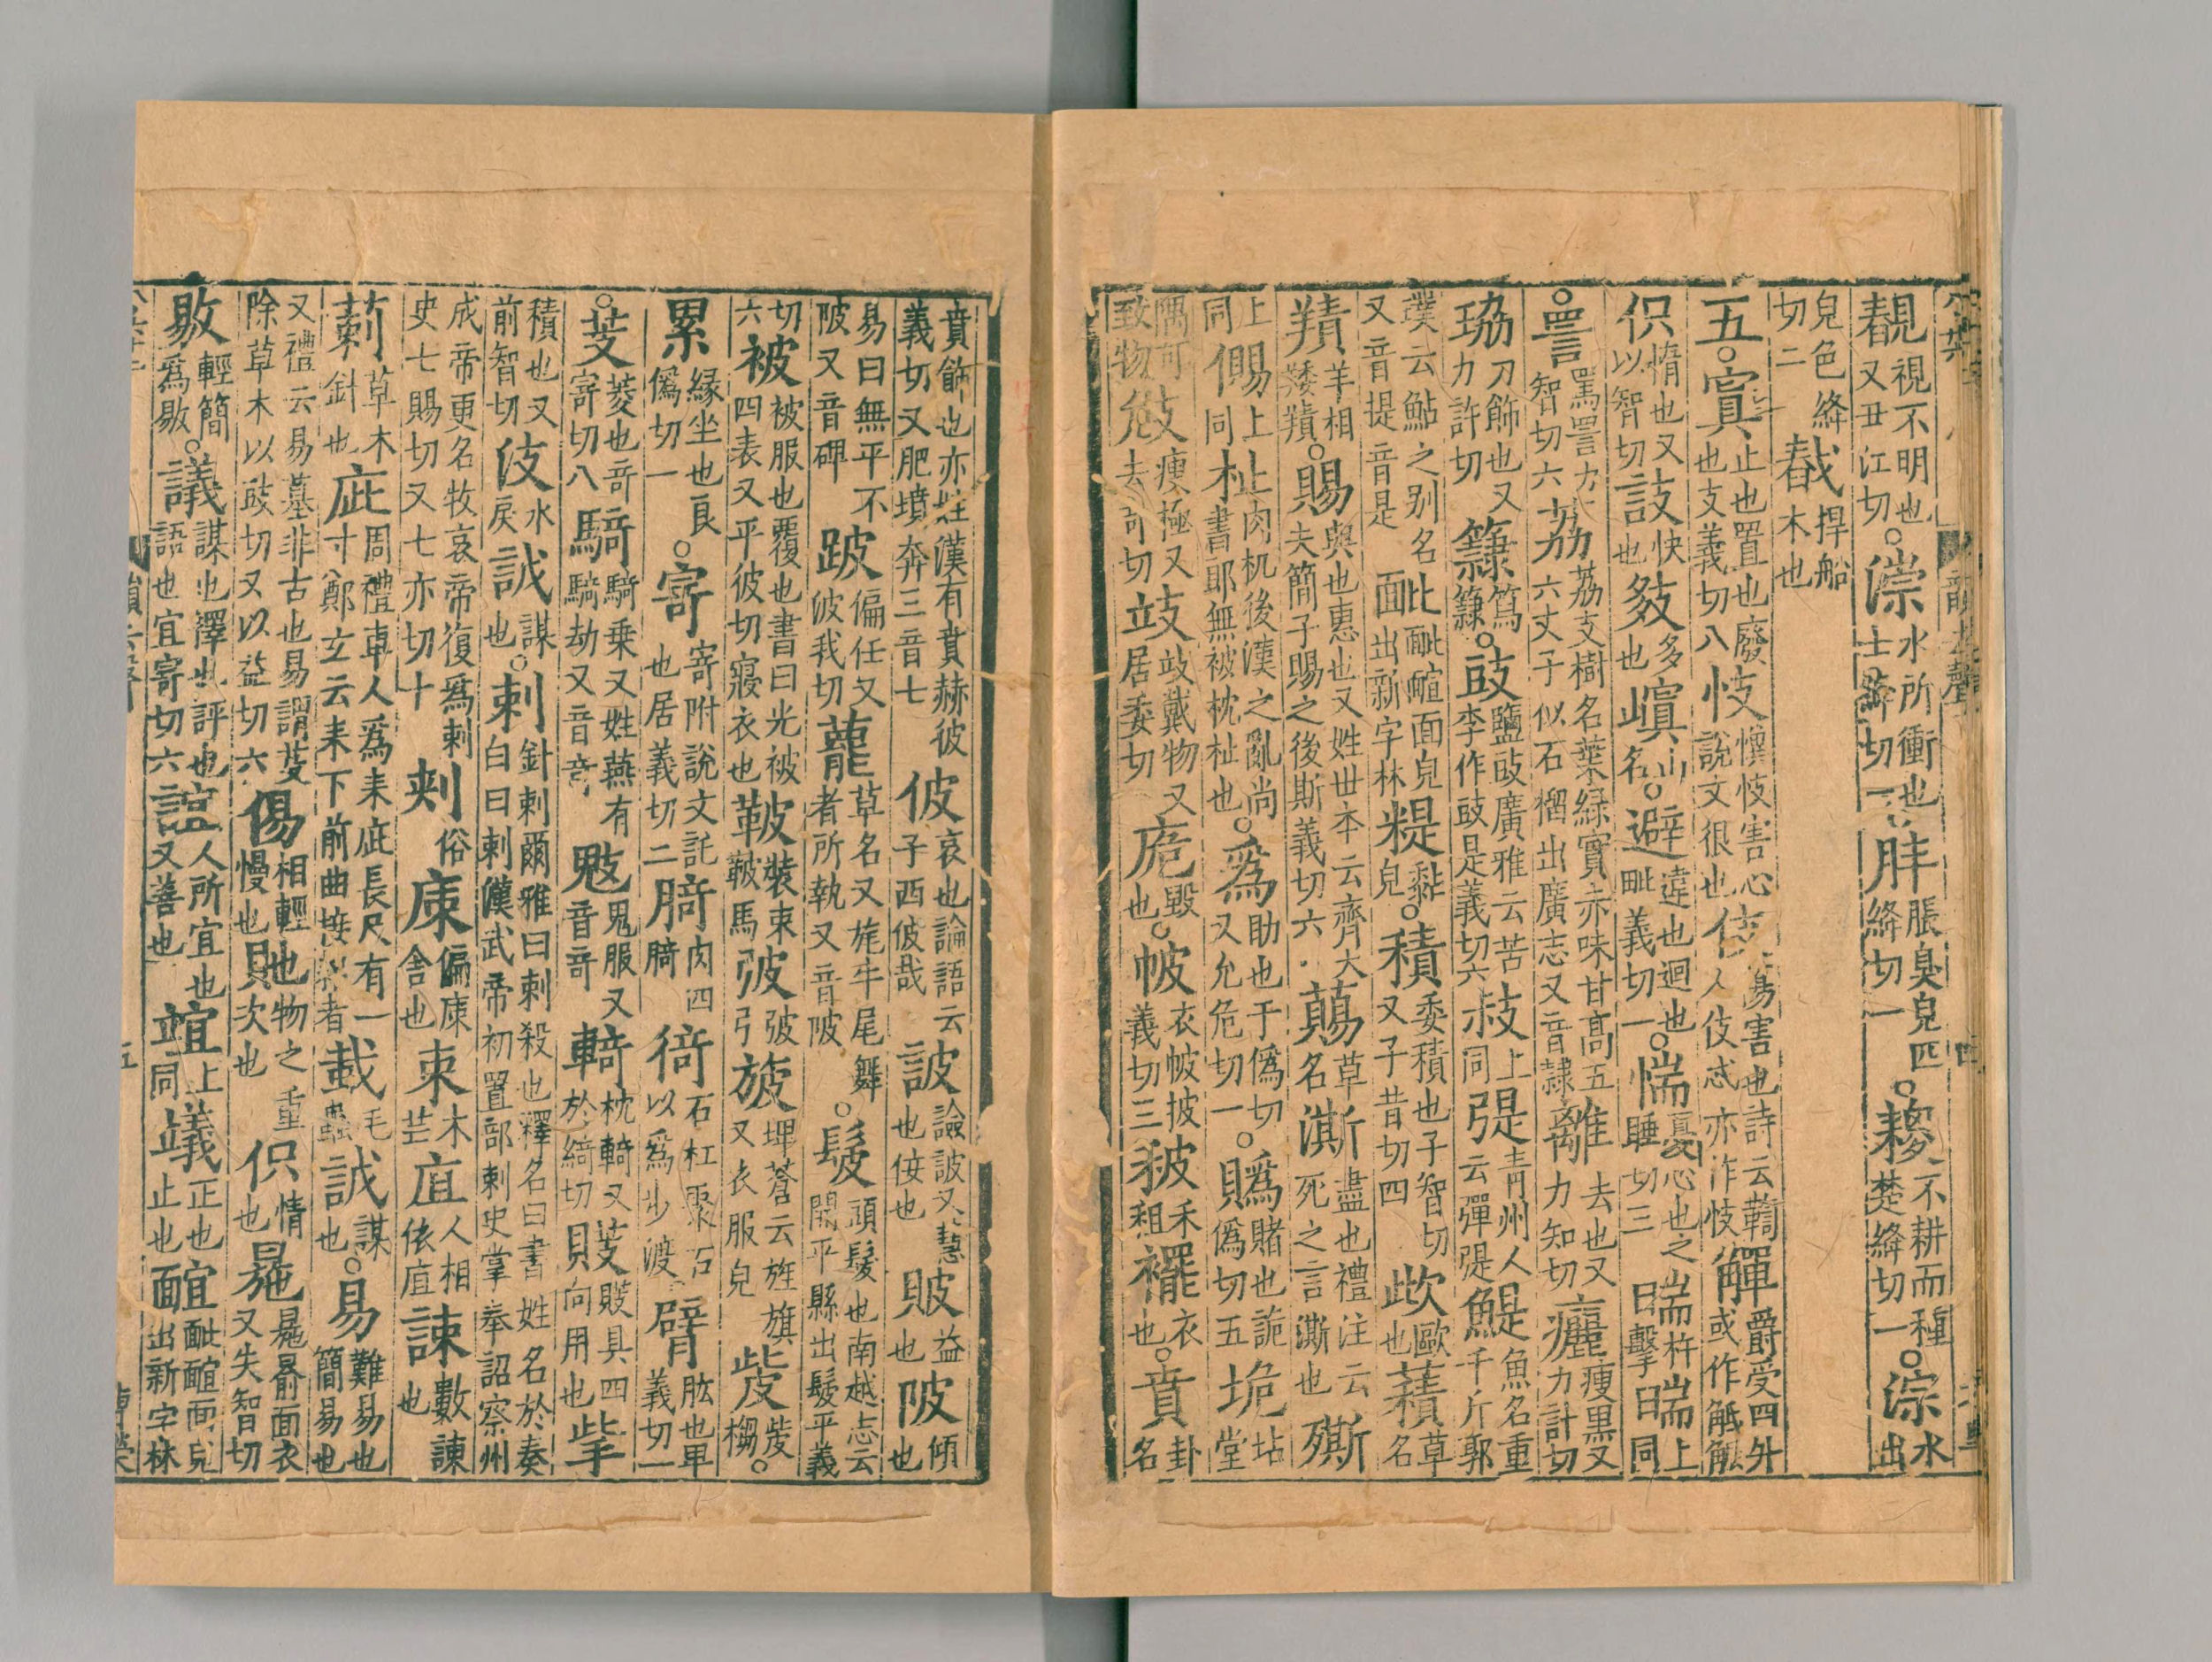 覩視不明也又丑江切○漴水所衝也士絳切一○胖脹臭皃匹絳切一○䎫不耕而種楚絳切一○淙水出
皃色絳切二䡴捍船木也
五○寘止也置也廢也支義切八忮懻忮害心說文很也伎傷害也詩云鞫人伎忒亦作忮觶爵受四升或作觗䚦
伿惰也又以智切䛊快也㩼多也㠔山名○避違也迴也毗義切一○惴憂心也之睡切三㓨杵㓨上曰擊同
○詈罵詈力智切六荔荔支樹名葉綠實赤味甘高五六丈子似石榴出廣志又音隸離去也又力知切癘瘦黑又力計切
珕刀飾也又力許切䉫䉫篤○豉鹽豉廣雅云苦李作豉是義切六䜴上同㢮青州人云彈㢮鯷魚名重千斤郭
璞云鮎之别名又音提音是䩄䩄䩉面皃出新字林䊓黏皃○積委積也子智切又子昔切四㰣歐也𧂐草名
羵羊相羵○賜與也惠也又姓世本云齊大夫簡子賜之後斯義切六䔮草名澌盡也禮注云死之言澌也𣩠
上同儩上同㭰肉机後漢之亂尚書郎無被枕㭰也○爲助也于僞切又允危切一○賵賭也詭僞切五垝坫堂
隅可致物㩻瘦極又去奇切攱攱戴物又居委切庪毀也○帔衣帔披義切三秛禾租襬衣也○賁卦名
賁飾也亦姓漢有賁赫彼義切又肥墳奔三音七佊哀也論語云子西佊哉詖譣詖又慧也佞也貱益也陂傾也
易曰無平不陂又音碑跛偏任又波我切藣草名又旄牛尾舞者所執又音陂○髲頭髲也南越志云開平縣出髲平義
切六被被服也覆也書曰光被四表又平彼切寢衣也鞁裝束鞁馬㢰㢰弓旇埤蒼云旌旗又衣服皃㱟㱟㯕○
累緣坐也良僞切一○寄寄附說文託也居義切二䏢肉四䏢徛石杠聚石以爲步渡臂肱也卑義切一
○芰菱也奇寄切八騎騎乘又姓燕有騎劫又音奇鬾鬼服又音奇輢枕輢又於綺切䝰芰䝰具四向用也㧘
積也又前智切伎水戾䛯謀也○刺針刺爾雅曰刺殺也釋名曰書姓名於奏白曰刺漢武帝初置部刺史掌奉詔察州
成帝更名牧哀帝復爲刺史七賜切又七亦切十㓨俗庲偏庲舍也朿木芒庛人相依庛諫數諫也
莿草木針也庛周禮車人爲耒庛長尺有一寸鄭玄云耒下前曲接耜者蛓毛蟲䛯謀也○易難易也簡易也
又禮云易墓非古也易謂芟除草木以豉切又以益切六傷相輕慢也貤物之重次也伿惰也㫊㫊㬱面衣又失智切
敡輕簡爲敡○議謀也擇也評也語也宜寄切六誼人所宜也又善也竩上同䕏正也止也䩉䩄䩉面皃出新字林